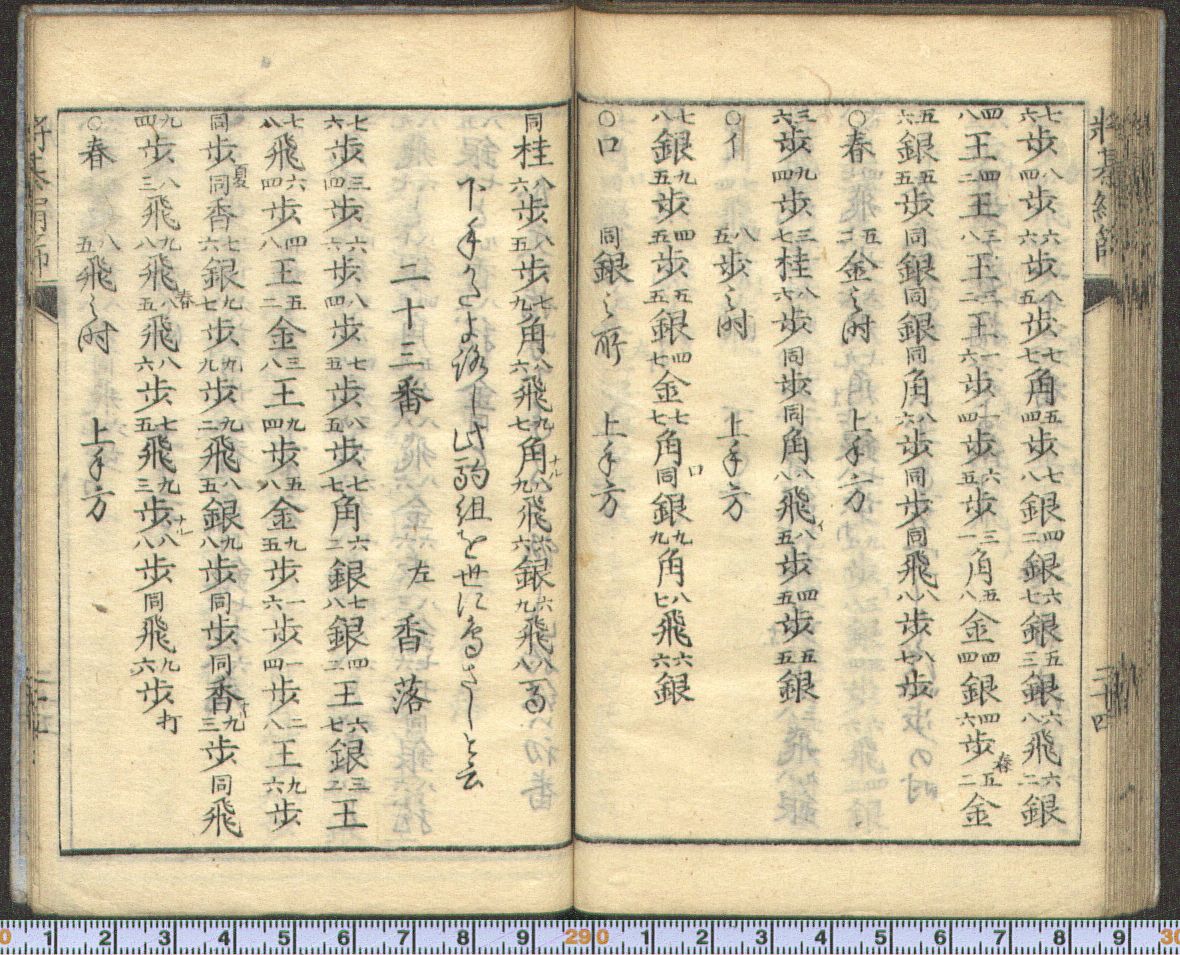 将棊絹篩
二十四
七六歩八四歩六六歩八五歩七七角五四歩七八銀四二銀六七銀五三銀六八飛六二銀
四八王四二王三八王三二王一六歩一四歩六五歩三一角五八金四四銀四六歩春五二金
五六銀五五銀同銀同銀同角八六歩同歩同飛八八歩八七歩
○春 五二金之時 上手方
三六歩九四歩三七桂八六歩同歩同角八八飛イ八五歩四五歩五五銀
○イ 八五歩之時 上手方
七八銀九五歩四五歩五五銀四七金七七角ロ同銀九九角八七飛六六銀
○ロ 同銀之所 上手方
同桂八六歩八五歩七九角八六飛九七角ナル八九飛六銀六九飛八八馬
下手かたよろし此駒組を世に鳥さしと云
二十三番 左香落
七六歩三四歩六六歩八四歩七五歩八五歩七七角六二銀七八銀四二王六七銀三二王
七八飛六四歩四八王五二金三八王九四歩五八金九五歩一六歩一四歩二八王九六歩
同歩夏同香七六銀九七歩九九歩九二飛八五銀九八歩同歩同香ナル九三歩同飛
九四歩八三飛九八飛春八五飛八六歩七五飛九三歩ナル八八歩同飛九六歩打
○春 八五飛之時 上手方